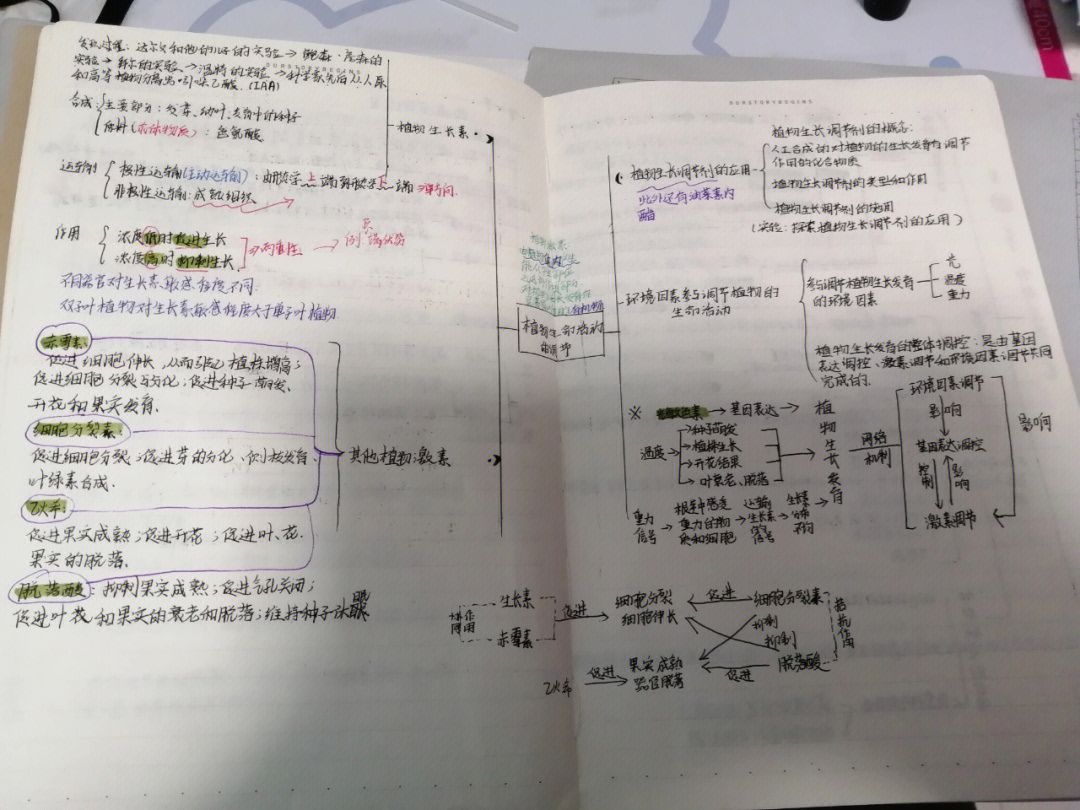 发现过程：达尔文和他的儿子的实验→鲍森·詹森的
实验→拜尔的实验→温特的实验→科学家先后从人尿
和高等植物分离出吲哚乙酸.(IAA)
合成
主要部分：芽、幼叶、发育中的种子
原料(前体物质)：色氨酸
运输
极性运输(主动运输)：由形态学上端到形态学下端
非极性运输：成熟组织
作用
浓度低时促进生长
浓度高时抑制生长
两重性
不同器官对生长素敏感程度不同.
双子叶植物对生长素敏感程度大于单子叶植物
植物生长素
赤霉素
促进细胞伸长，从而引起植株增高；
促进细胞分裂与分化；促进种子萌发、
开花和果实发育.
细胞分裂素
促进细胞分裂；促进芽的分化、侧枝发育、
叶绿素合成.
乙烯
促进果实成熟；促进开花；促进叶、花、
果实的脱落.
脱落酸：抑制果实成熟；促进气孔关闭；
促进叶、花和果实的衰老和脱落；维持种子休眠
其他植物激素
植物生命活动
调节
植物生长调节剂的应用
此外还有油菜素内
酯
植物生长调节剂的概念：
人工合成的对植物的生长发育有调节
作用的化合物质
植物生长调节剂的类型和作用
植物生长调节剂的施用
(实验：探索植物生长调节剂的应用)
环境因素参与调节植物的
生命活动
参与调节植物生长发育
的环境因素
光
温度
重力
植物生长发育的整体调控：是由基因
表达调控、激素调节和环境因素调节共同
完成的.
※ 光敏色素→基因表达→
温度
种子萌发
植株生长
开花结果
叶衰老、脱落
植物生长发育
网络
机制
重力
信号
→
根茎中感受
重力的物
质和细胞
→
运输
生长素
的
信号
→
生长素
分布
不均
→
环境因素调节
影响
基因表达调控
控制
影响
激素调节
影响
协作
同用
生长素
赤霉素
促进
细胞分裂
细胞伸长
促进
细胞分裂素
抑制
抑制
脱落酸
拮抗作用
乙烯
促进
果实成熟
器官脱落
促进